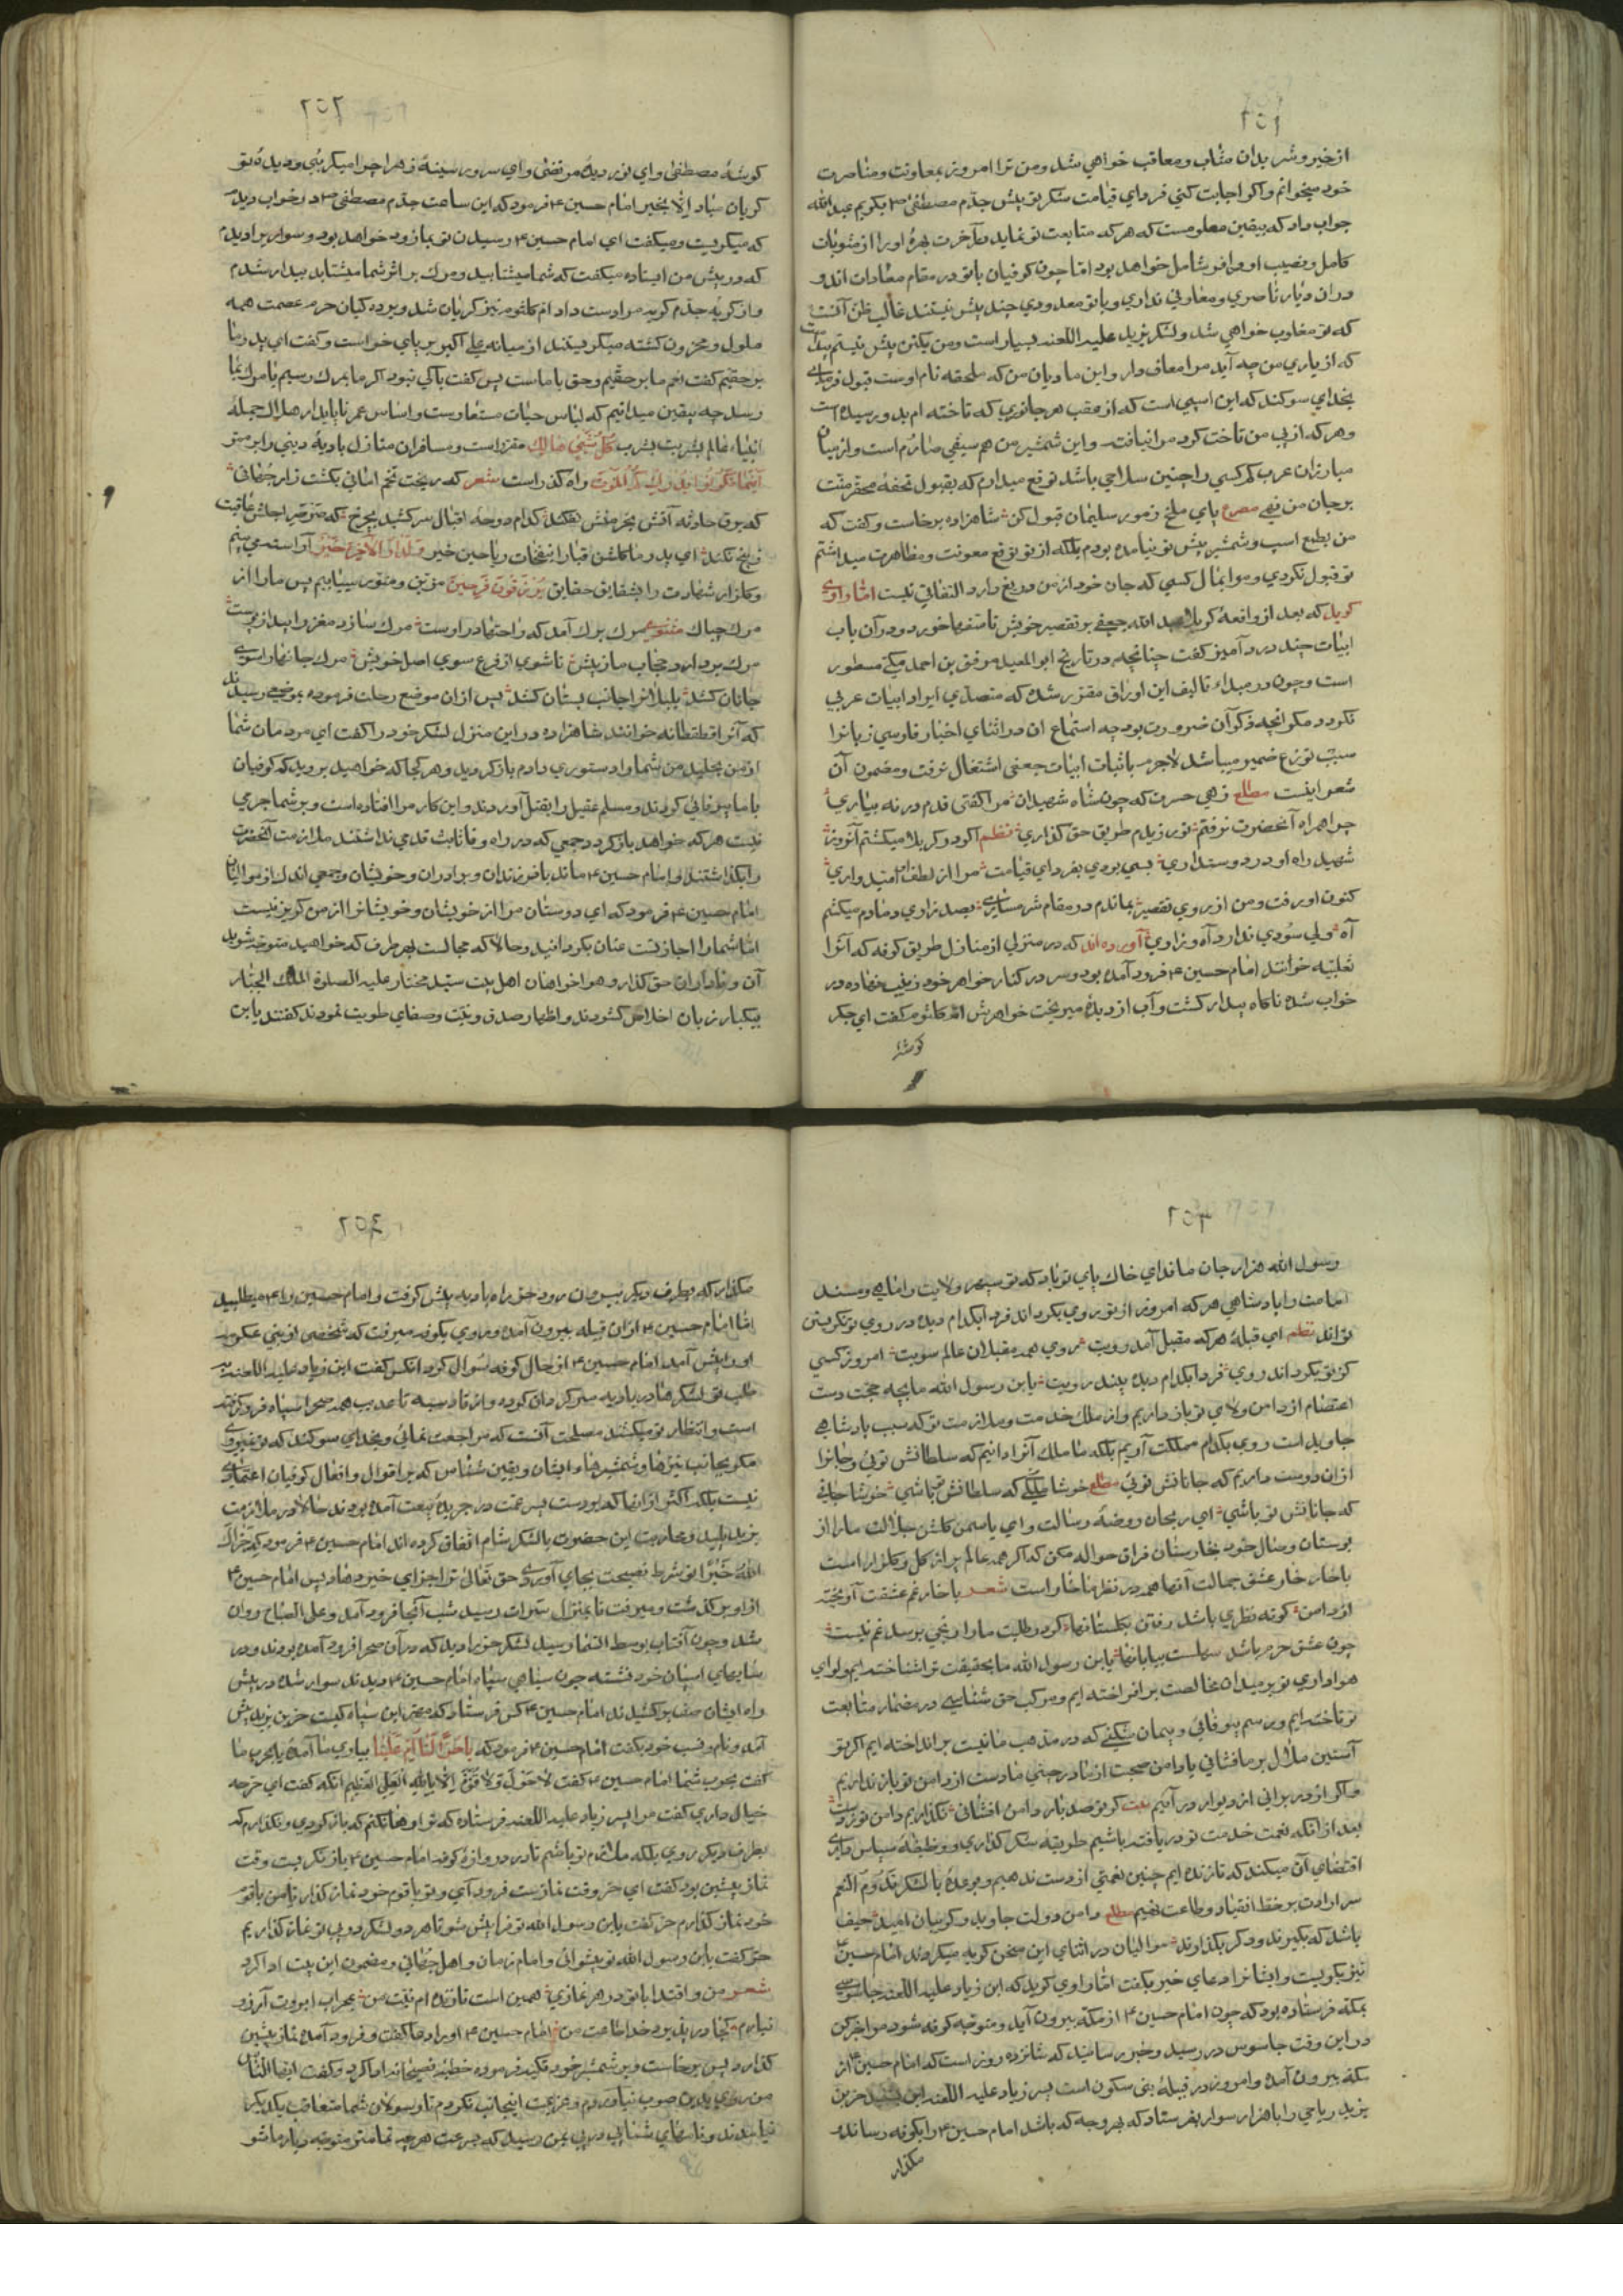 از خیر و شر بدان مثاب و معاقب خواهی شد و من ترا امروز بمعاونت و مناصرت
خود میخوانم و اگر اجابت کنی فردای قیامت شکر تو پیش جدّم مصطفیٰ ص بگویم عبد الله
جواب داد که بیقین معلومست که هر که متابعت تو نماید در آخرت بهرهٔ او را از مثوبات
کامل و نصیب او وافر و شامل خواهد بود اما چون کوفیان با تو در مقام معادات اند و
دران دیار ناصری و معاونی نداری و با تو معدودی چند بیش نیستند غالب ظن آنست
که تو مغلوب خواهی شد و لشکر یزید علیه اللعنه بسیار است و من یکتن بیش نیستم
که از یاری من چه آید مرا معاف دار و این مادیان من که ملحقه نام اوست قبول فرمای
بخدای سوکند که این اسپی است که از عقب هر جانوری که تاخته ام بدو رسیده است
و هر که از پی من تاخت کرد مرا نیافت و این شمشیر من هم سیفی صارم است و از میان
مبارزان عرب کم کسی را چنین سلاحی باشد توقع میدارم که بقبول تحفهٔ محقر منت
بر جان من نهی مصرع پای ملخ ز مور سلیمان قبول کن شاهزاده برخاست و کفت که
من بطمع اسپ و شمشیر پیش تو نیامده بودم بلکه از تو توقع معونت و مظاهرت میداشتم
تو قبول نکردی و مرا بمال کسی که جان خود از من دریغ دارد التفاتی نیست امّا راوی
کوید که بعد از واقعهٔ کربلا عبد الله جعفی بر تقصیر خویش تاسفها خورد و در آن باب
ابیات چند درد آمیز کفت چنانچه در تاریخ ابو المعید موفق بن احمد مکی مسطور
است و چون در مبداء تالیف این اوراق مقرر شد که متصدی ایراد ابیات عربی
نکردد مکر انچه ذکر آن ضرورت بود چه استماع ان در اثنای اخبار فارسی زبانرا
سبب توزع ضمیر میباشد لاجرم باثبات ابیات جعفی اشتغال نرفت و مضمون آن
شعر اینست مطلع زهی حسرت که چون شاه شهیدان مرا کفتی قدم در نه بیاری
چرا همراه آنحضرت نرفتم نورزیدم طریق حق کذاری نظم اکر در کربلا میکشتم آنروز
شهید راه او در دوستداری بسی بودی بفردای قیامت مرا از لطف او امیدواری
کنون او رفت و من از روی تقصیر بماندم در مقام شرمساری بصد زاری دمادم میکشم
آه ولی سودی ندارد آه و زاری آورده اند که در منزلی از منازل طریق کوفه که آنرا
ثعلبیه خوانند امام حسین ع فرود آمده بود و سر در کنار خواهر خود زینب نهاده در
خواب شده ناکاه بیدار کشت و آب از دیده میریخت خواهرش ام کلثوم کفت ای جکر
کوشهٔ
کوشهٔ مصطفیٰ و ای نور دیدهٔ مرتضیٰ و ای سرور سینهٔ زهرا چرا میکریئی و دیدهٔ تو
کریان مباد الّا بخیر امام حسین ع فرمود که این ساعت جدّم مصطفیٰ ص در خواب دیدم
که میکریست و میکفت ای امام حسین ع رسیدن تو بما زود خواهد بود و سواری را دیدم
که در پیش من ایستاده میکفت که شما میشتابید و مرک بر اثر شما میشتابد بیدار شدم
و از کریهٔ جدّم کریه مرا دست داد ام کلثوم نیز کریان شد و پرده کیان حرم عصمت همه
ملول و محزون کشته میکریستند از میانه علی اکبر بر پای خواست و کفت ای پدر ما
بر حقیم کفت نعم ما بر حقیم و حق با ماست پس کفت باکی نبود اکر ما بمرک رسیم یا مرک بما
رسد چه بیقین میدانیم که لباس حیات مستعار است و اساس عمر ناپایدار هلاک جملهٔ
انبیاء عالم بشریت بشرب کُلُّ شَیْءٍ هَالِکٌ مقرر است و مسافران منازل بادیهٔ دینی را بر ممر
اَیْنَمَا تَکُونُوا یُدْرِکْکُمُ الْمَوْتُ راه کذر است شعر که ریخت تخم امانی بکشت زار جهانی
که برق حادثه آتش بخرمنش نفکند کدام دوحهٔ اقبال سر کشید بچرخ که صرصر اجلش عاقبت
ز بیخ نکند ای پدر ما کلشن اقبال را بنفحات ریاحین خیر وَلَدَارُ الْاٰخِرَةِ خَیْرٌ آراسته می بینم
و کلزار شهادت را بشقایق حقایق یُرْزَقُونَ فَرِحِینَ مزین و منور میبابیم پس ما را از
مرک چه باک مثنوی مرک برک آمد که راحتها دراوست مرک سازد مغز را بیرون ز پوست
مرک بردارد حجاب ما ز پیش تا شوی از فرع سوی اصل خویش مرک جانها را سوی
جانان کشد بلبلانرا جانب بستان کشد پس ازان موضع رحلت فرموده بموضعی رسیدند
که آنرا قطقطانه خوانند شاهزاده در این منزل لشکر خود را کفت ای مردمان شما
از من بحلید من شما را دستوری دادم باز کردید و هر کجا که خواهید بروید که کوفیان
با ما بیوفائی کردند و مسلم عقیل را بقتل آوردند و این کار مرا افتاده است و بر شما جرمی
نیست هر که خواهد باز کردد جمعی که در راه وفا ثابت قدمی نداشتند ملازمت آنحضرت
را بکذاشتند امام حسین ع ماند با فرزندان و برادران و خویشان و جمعی اندک از موالیان
امام حسین ع فرمود که ای دوستان مرا از خویشان و خویشانرا از من کریز نیست
اما شما را اجازتست عنان بکردانید و حالا که مجالست بهر طرف که خواهید متوجه شوید
آن وفاداران حق کذار و هوا خواهان اهل بیت سیّد مختار علیه الصلوة الملک الجبّار
بیکبار زبان اخلاص کشودند و اظهار صدق نیّت و صفای طویت نمودند کفتند یابن
رسول الله هزار جان ما فدای خاک پای تو باد که تو سپهر ولایت را ماهی و مسند
امامت را پادشاهی هر که امروز از تو روی بکرداند فردا بکدام دیده در روی تو نکریستن
تواند نظم ای قبلهٔ هر که مقبل آمد رویت روی همه مقبلان عالم سویت امروز کسی
کز تو بکرداند روی فردا بکدام دیده بیند رویت یابن رسول الله ما بچه حجت دست
اعتصام از دامن ولای تو باز داریم و از ملک خدمت و ملازمت تو که سبب پادشاهی
جاوید است روی بکدام مملکت آریم بلکه ما ملک آنرا دانیم که سلطانش توئی و جانرا
ازان دوست داریم که جانانش توئی مطلع خوشا ملکی که سلطانش تو باشی خوشا جانی
که جانانش تو باشی ای ریحان روضهٔ رسالت و ای یاسمن کلشن جلالت ما را از
بوستان وصال خود بخارستان فراق حواله مکن که اکر همه عالم پر از کل و کلزار است
با خار خار عشق جمالت آنها همه در نظر ما خار است شعر با خار غم عشقت آویخته
از دامن کوته نظری باشد رفتن بکلستانها کر در طلبت ما را رنجی برسد غم نیست
چون عشق حرم باشد سهلست بیابانها یابن رسول الله ما بحقیقت ترا شناخته ایم و لوای
هواداری تو بر میدان مخالصت بر افراخته ایم و مرکب حق شناسی در مضمار متابعت
تو تاخته ایم و رسم بیوفائی و پیمان شکنی که در مذهب ما نیست بر انداخته ایم اکر تو
آستین ملال بر ما فشانی یا دامن صحبت از ما در چینی ما دست از دامن تو باز نداریم
و اکر از در برانی از دیوار در آئیم بیت کر تو صد بار دامن افشانی نکذاریم دامن تو ز دست
بعد از انکه نعمت خدمت تو در یافته باشیم طریقهٔ شکر کذاری و وظیفهٔ سپاس داری
اقتضای آن میکند که تا زنده ایم چنین نعمتی از دست ندهیم و بوعدهٔ بالشکر تدوم النعم
سر ارادت بر خط انقیاد و طاعت نهیم مطلع دامن دولت جاوید و کریبان امید حیف
باشد که بکیرند و دکر بکذارند موالیان در اثنای این سخن کریه میکردند امام حسین ع
نیز بکریست و ایشانرا دعای خیر بکفت اما راوی کوید که ابن زیاد علیه اللعنه جاسوسی
بمکه فرستاده بود که چون امام حسین ع از مکه بیرون آید و متوجه کوفه شود مرا خبر کن
در این وقت جاسوس در رسید و خبر رسانید که شانزده روز است که امام حسین ع از
مکه بیرون آمده و امروز در قبیلهٔ بنی سکون است پسر زیاد علیه اللعنه حر بن
یزید ریاحی را با هزار سوار بفرستاد که بهر وجه که باشد امام حسین ع را بکوفه رساند و
مکذار
مکذار که بطرف دیکر بیرون رود حر راه بادیه پیش کرفت و امام حسین را ع میطلبید
اما امام حسین ع ازان قبیله بیرون آمده و روی بکوفه میرفت که شخصی از بنی عکرمه
او را پیش آمد امام حسین ع از حال کوفه سؤال کرد انکس کفت ابن زیاد علیه اللعنه در
طلب تو لشکرها در بادیه سر کردان کرده و از قادسیه تا عذیب همه صحرا سپاه فرو کرفته
است و انتظار تو میکشند مصلحت آنست که مراجعت نمائی و بخدای سوکند که تو نمیروی
مکر بجانب نیزها و شمشیرها و ایشان و یقین شناس که بر اقوال و افعال کوفیان اعتمادی
نیست بلکه اکثر از انها که بودست پسر عمت در جریدهٔ بیعت آمده بودند حالا در ملازمت
یزید پلید و محاربت این حضرت با لشکر شام اتفاق کرده اند امام حسین ع فرمود که جَزَاکَ
اللّٰهُ خَیْراً تو شرط نصیحت بجای آوردی حق تعالیٰ ترا جزای خیر دهاد پس امام حسین ع
از او بر کذشت و میرفت تا بمنزل سَرات رسید شب آنجا فرود آمد و علی الصباح روان
شد و چون آفتاب بوسط السّما رسید لشکر حر را دید که در آن صحرا فرود آمده بودند و در
سایهای اسپان خود نشسته چون سیاهی سپاه امام حسین ع دیدند سوار شده در پیش
راه ایشان صف بر کشیدند امام حسین ع کس فرستاد که مهتر این سپاه کیست حر بن یزید پیش
آمد و نام و نسب خود بکفت امام حسین ع فرمود که یَا حُرُّ اَلَنَا اَمْ عَلَیْنَا بیاری ما آمدهٔ یا بحرب ما
کفت بحرب شما امام حسین ع کفت لاَ حَوْلَ وَلاَ قُوَّةَ اِلاَّ بِاللهِ الْعَلِیِّ الْعَظِیمِ انکه کفت ای حر چه
خیال داری کفت مرا پسر زیاد علیه اللعنه فرستاده که ترا رها نکنم که باز کردی و نکذارم که
بطرف دیکر روی بلکه ملازم تو باشم تا در دروازهٔ کوفه امام حسین ع باز نکریست وقت
نماز پیشین بود کفت ای حر وقت نماز ست فرود آی و تو با قوم خود نماز کذار تا من با قوم
خود نماز کذارم حر کفت یابن رسول الله تو فرا پیش شو تا هر دو لشکر در پی تو نماز کذاریم
حر کفت یابن رسول الله تو پیشوائی و امام زمان و اهل جهانی و مضمون این بیت ادا کرد
شعر من و اقتدا با تو در هر نمازی همین است تا زنده ام نیّت من بمحراب ابروت آرزو
نیارم کجا در پذیرد خدا طاعت من امام حسین ع او را دعا کفت و فرود آمده نماز پیشین
کذارد پس برخاست و بر شمشیر خود تکیه فرموده خطبهٔ فصیحانه ادا کرد و کفت ایها النّاس
من روی بدین صوب نیاوردم و عزیمت اینجانب نکردم تا رسولان شما متعاقب یکدیکر
نیامدند و نامهای شما پی در پی بمن رسید که بسرعت هر چه تمامتر متوجه دیار ما شو